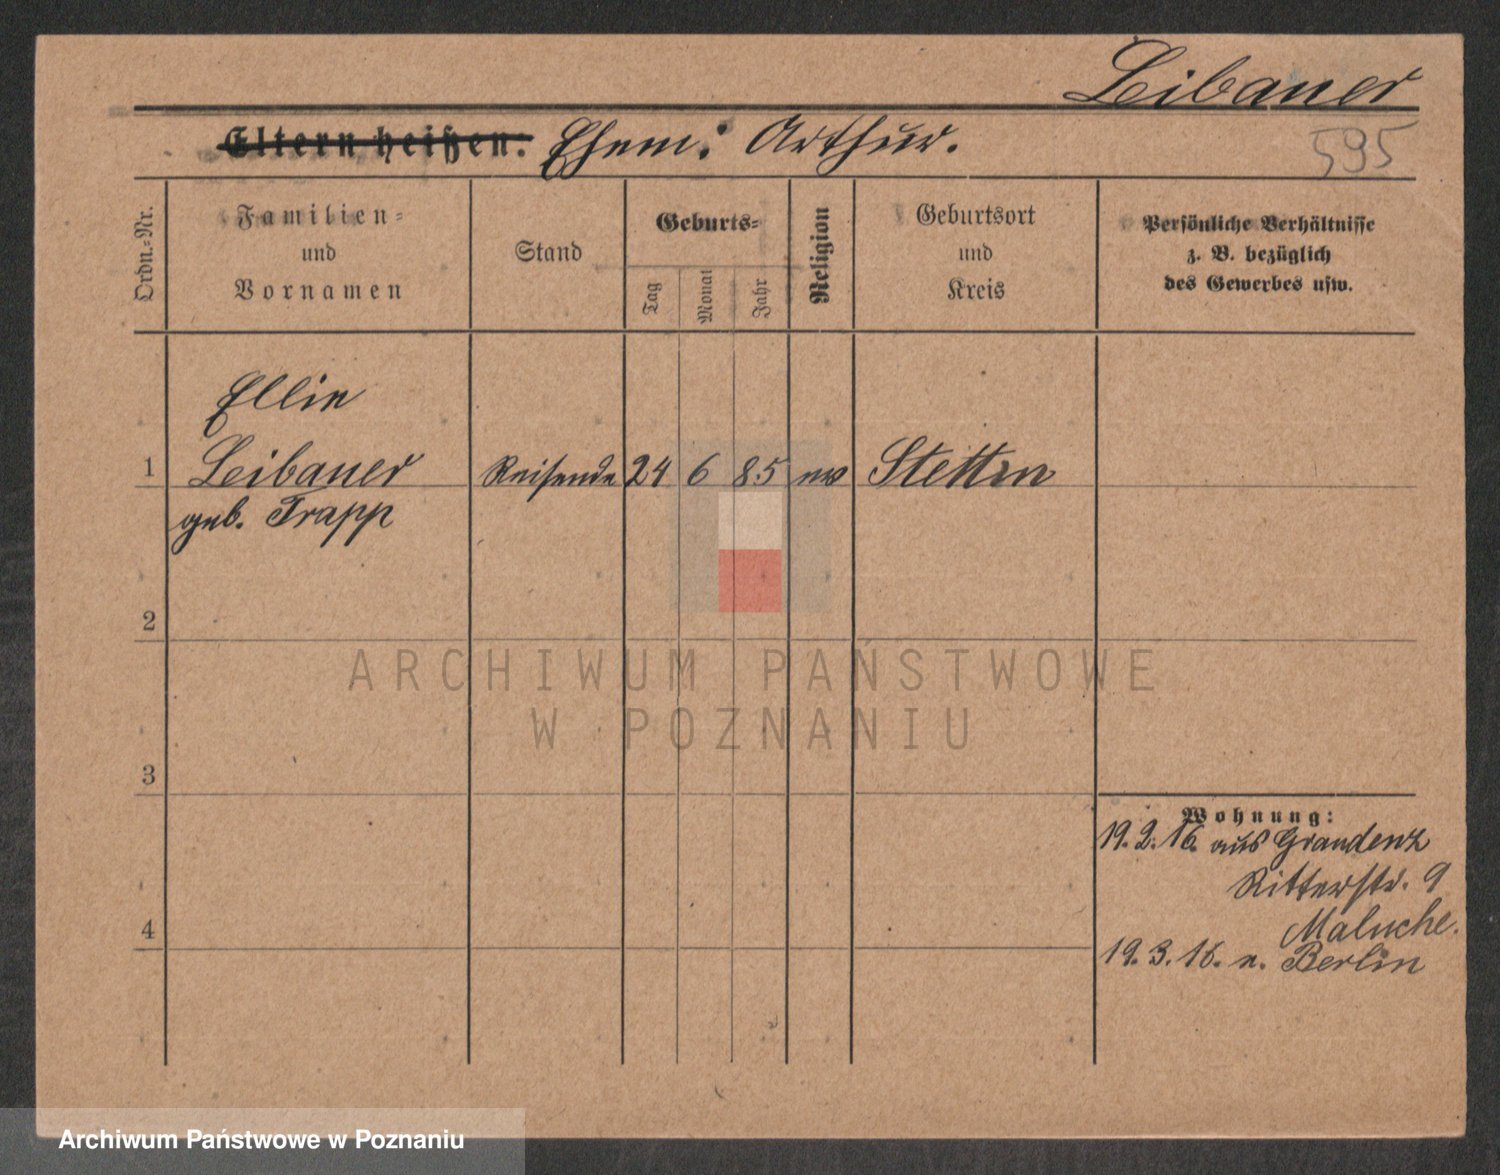 Leibauer
Eltern heißen: Ehem: Arthur.
595
Ordn.-Nr.
Familien-
und
Vornamen
Stand
Geburts-
Tag
Monat
Jahr
Religion
Geburtsort
und
Kreis
Persönliche Verhältnisse
z. B. bezüglich
des Gewerbes usw.
Ellin
1 Leibauer Reisende 24 6 85 ev Stettin
geb. Trapp
2
ARCHIWUM PAŃSTWOWE
W POZNANIU
3
Wohnung:
19.2.16. aus Graudenz
Ritterstr. 9
Maluche.
4
19.3.16. n. Berlin
Archiwum Państwowe w Poznaniu